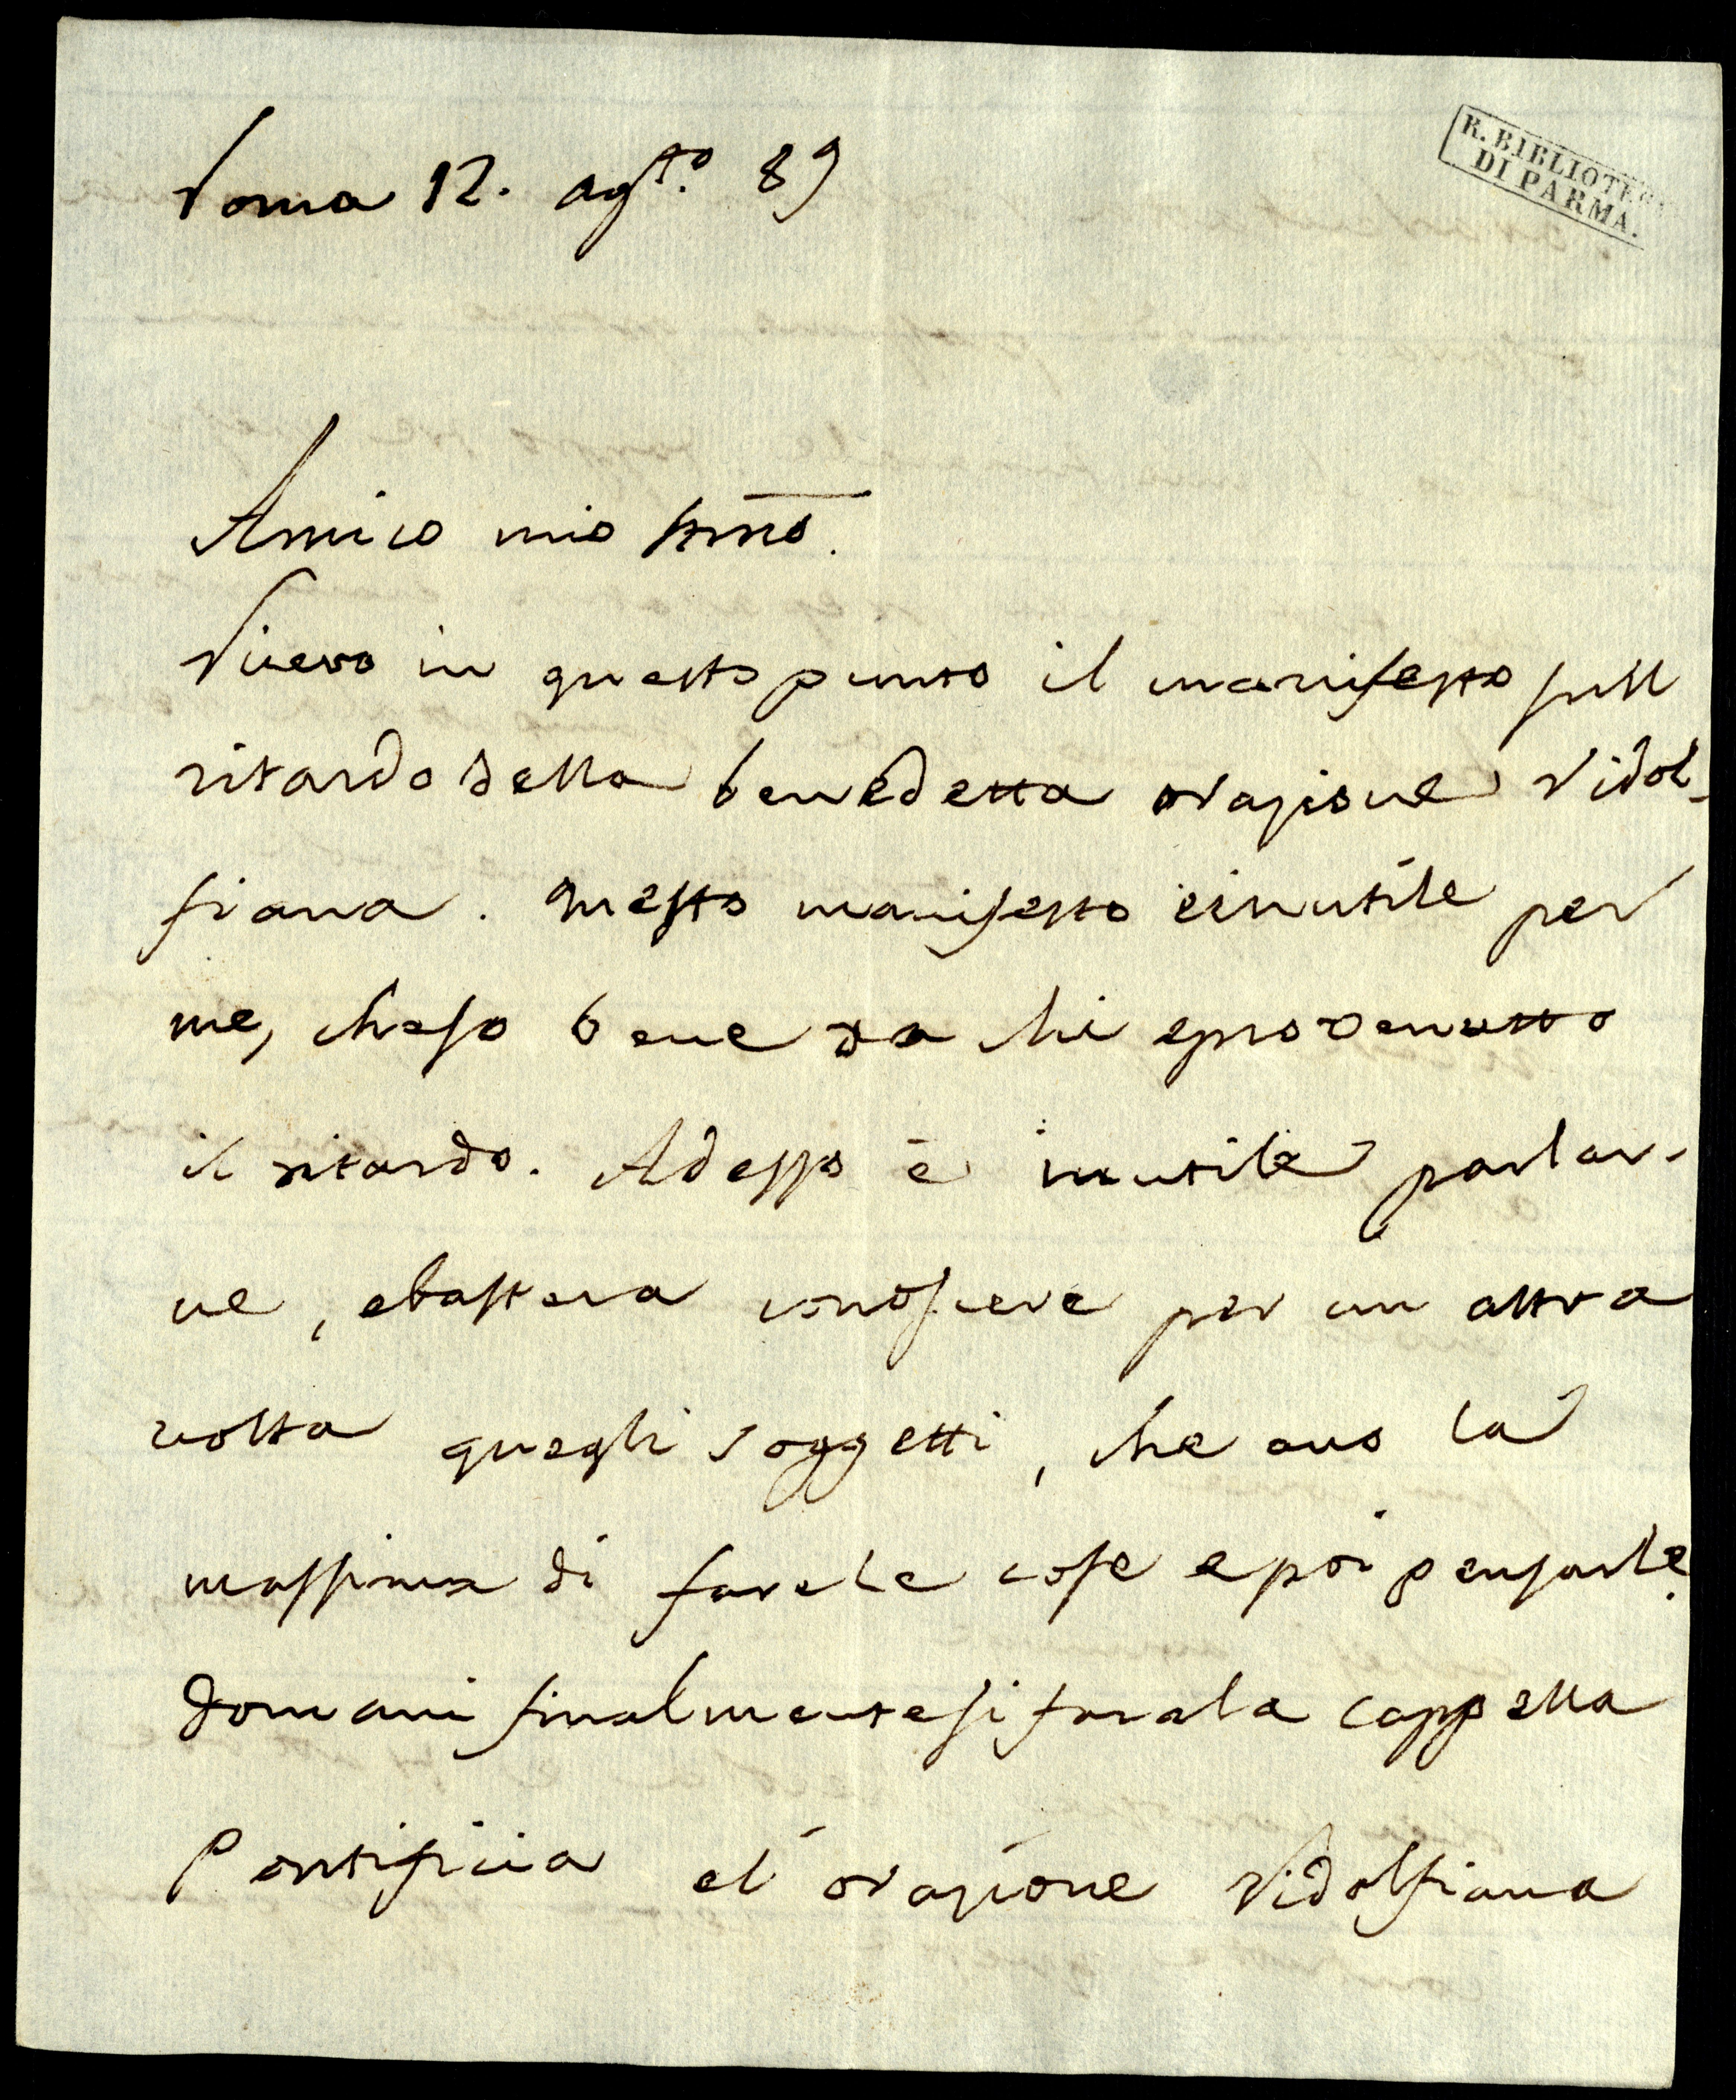 Roma 12. ag.to 89
R. BIBLIOTECA
DI PARMA.
Amico mio stimo.
Ricevo in questo punto il manifesto sull
ritardo della benedetta orazione Ridol-
fiana. Questo manifesto è inutile per
me, che so bene da chi e provenutto
il ritardo. Adesso è inutile parlar-
ne, e bastera conoscere per un altra
volta quegli soggetti, che ano la
massima di fare le cose e poi pensarle.
Domani finalmente si fara la cappella
Pontificia e l'orazione Ridolfiana